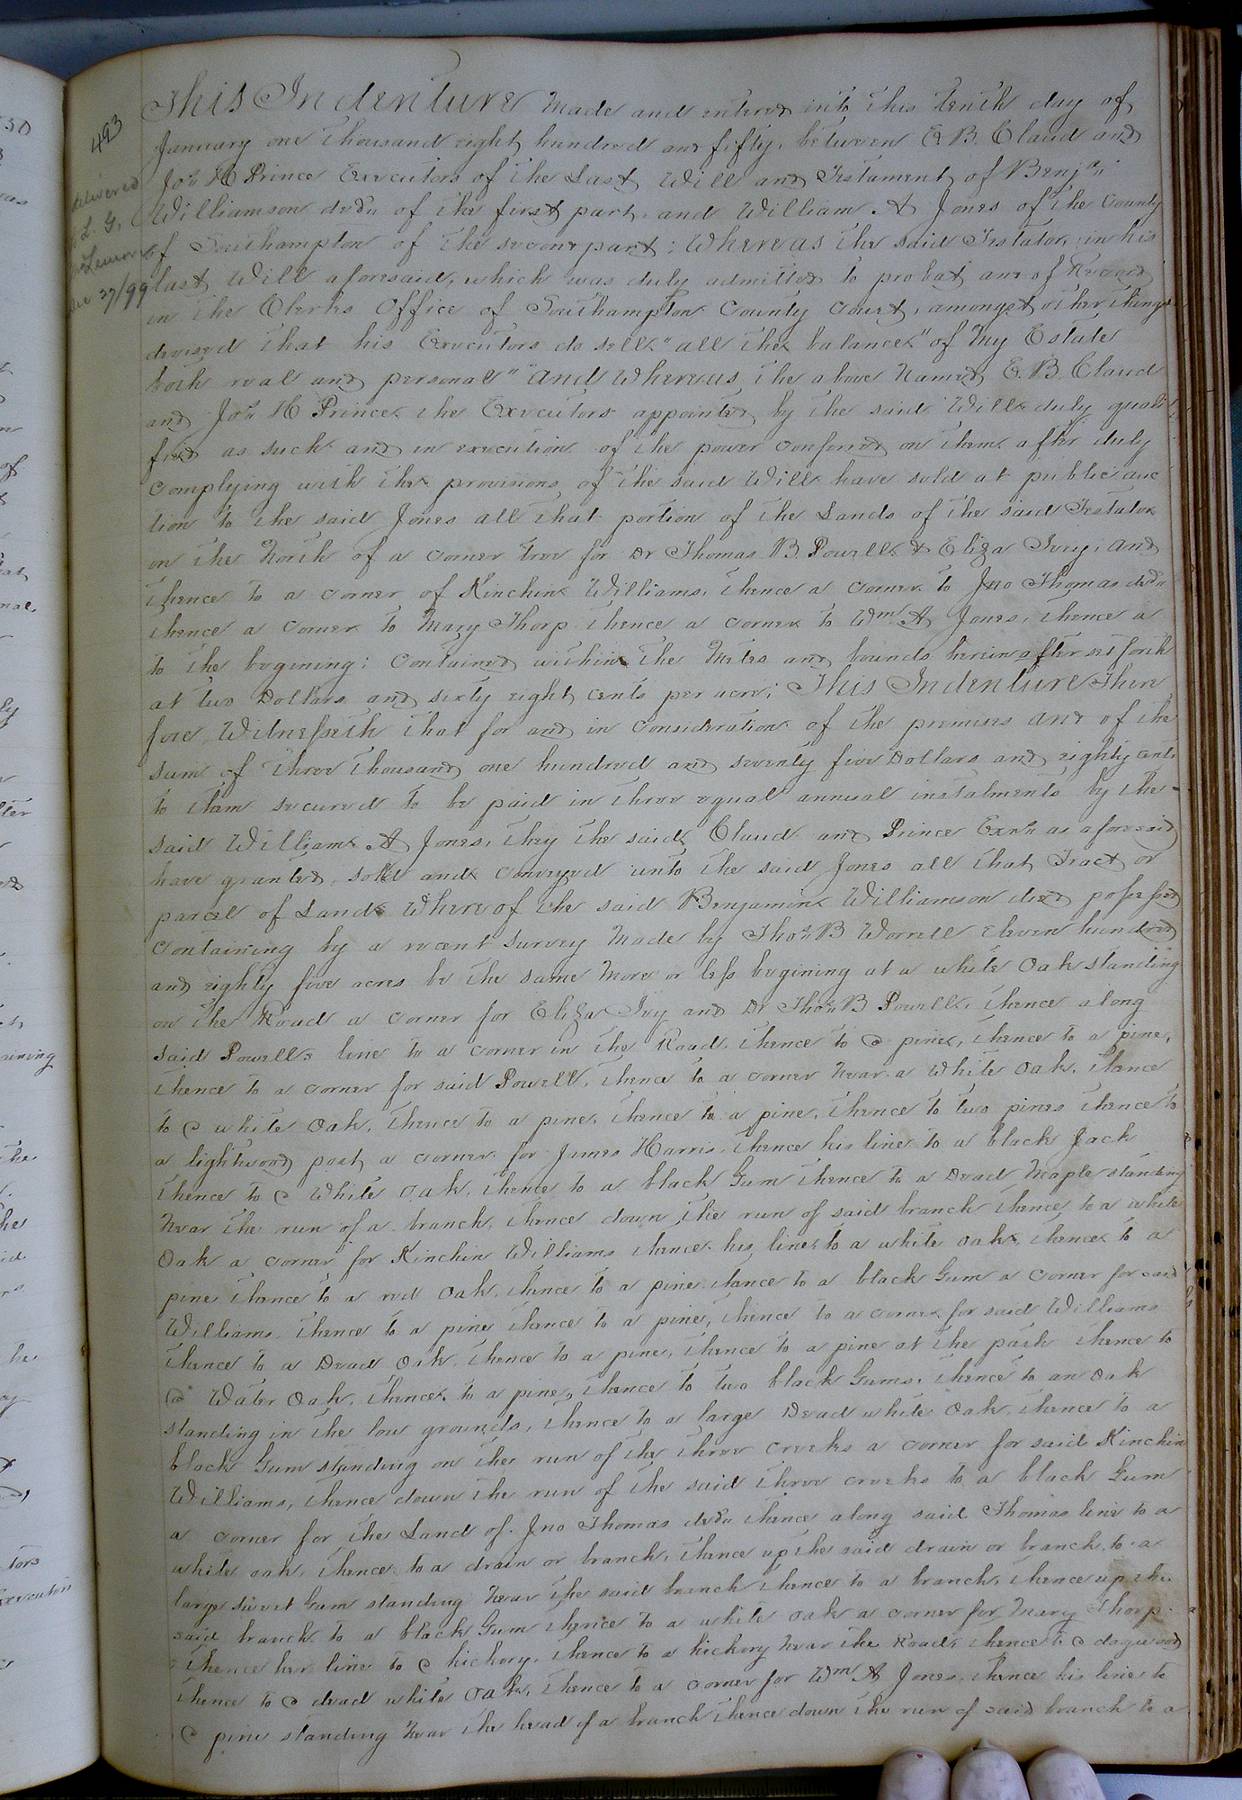 493
delivered
L. G.
Dec 27/99
This Indenture Made and entered into this tenth day of
January one thousand eight hundred and fifty, between E. B. Claud and
Jos. H Prince Executors of the Last Will and Testament of Benjn
Williamson decd. of the first part, and William A Jones of the County
of Southampton of the second part: Whereas the said Testator, in his
last Will aforesaid, which was duly admitted to probat and of Record
in the Clerks Office of Southampton County Court, amongst other things
devised that his Executors do sell "all the balance" of My Estate
both real and personal" And Whereas, the above Named E. B. Claud
and Jos. H Prince the Executors appointed by the said Will duly quali
fied as such and in execution of the power conferred on them after duly
complying with the provisions of the said Will have sold at public auc
tion to the said Jones all that portion of the Lands of the said Testator
on the North of a corner tree for Dr Thomas B Powell & Eliza Ivry, and
thence to a corner of Kinchin Williams, thence a corner to Jno Thomas decd
thence a corner to Mary Thorp thence a corner to Wm A Jones, thence a
to the begining: Contained within the Metes and bounds herein after set forth
at two Dollars and sixty eight cents per acre; This Indenture There
fore Witnesseth that for and in Consideration of the premises and of the
sum of three thousand one hundred and seventy five Dollars and eighty cents
to them secured to be paid in three equal annual instalments by the
said William A Jones, they the said Claud and Prince Exors as aforesaid
have granted, sold and conveyed unto the said Jones all that Tract or
parcel of Land Where of the said Benjamin Williamson died possessed
Containing by a recent Survey Made by Thos B Worrell eleven hundred
and eighty five acres be the same More or less begining at a white Oak standing
on the Road a corner for Eliza Ivy and Dr Thos B Powell, thence along
said Powells line to a corner in the Road, thence to a pine, thence to a pine,
thence to a corner for said Powell, thence to a corner Near a White Oak, thence
to a white Oak, thence to a pine, thence to a pine, thence to two pines thence to
a lightwood post a corner for James Harris, thence his line to a black Jack
thence to a White Oak, thence to a black Gum thence to a Dead Maple standing
Near the run of a branch, thence down the run of said branch thence to a white
Oak a corner for Kinchin Williams thence his line to a white oak, thence to a
pine thence to a red Oak, thence to a pine thence to a black Gum a corner for said
Williams thence to a pine thence to a pine, thence to a corner for said Williams
thence to a Dead Oak, thence to a pine, thence to a pine at the path thence to
a Water Oak, thence to a pine, thence to two black Gums, thence to an oak
standing in the low grounds, thence to a large Dead white Oak, thence to a
black Gum standing on the run of the three creeks a corner for said Kinchin
Williams, thence down the run of the said three creeks to a black Gum
a corner for the Land of Jno Thomas decd thence along said Thomas line to a
white oak, thence to a drain or branch, thence up the said drain or branch to a
large sweet Gum standing Near the said branch thence to a branch, thence up the
said branch to a black Gum thence to a white oak a corner for Mary Thorp
thence her line to a hickory, thence to a hickory Near the Road, thence to a dogwood
thence to a dead white Oak, thence to a corner for Wm A Jones, thence his line to
a pine standing Near the head of a branch thence down the run of said branch to a